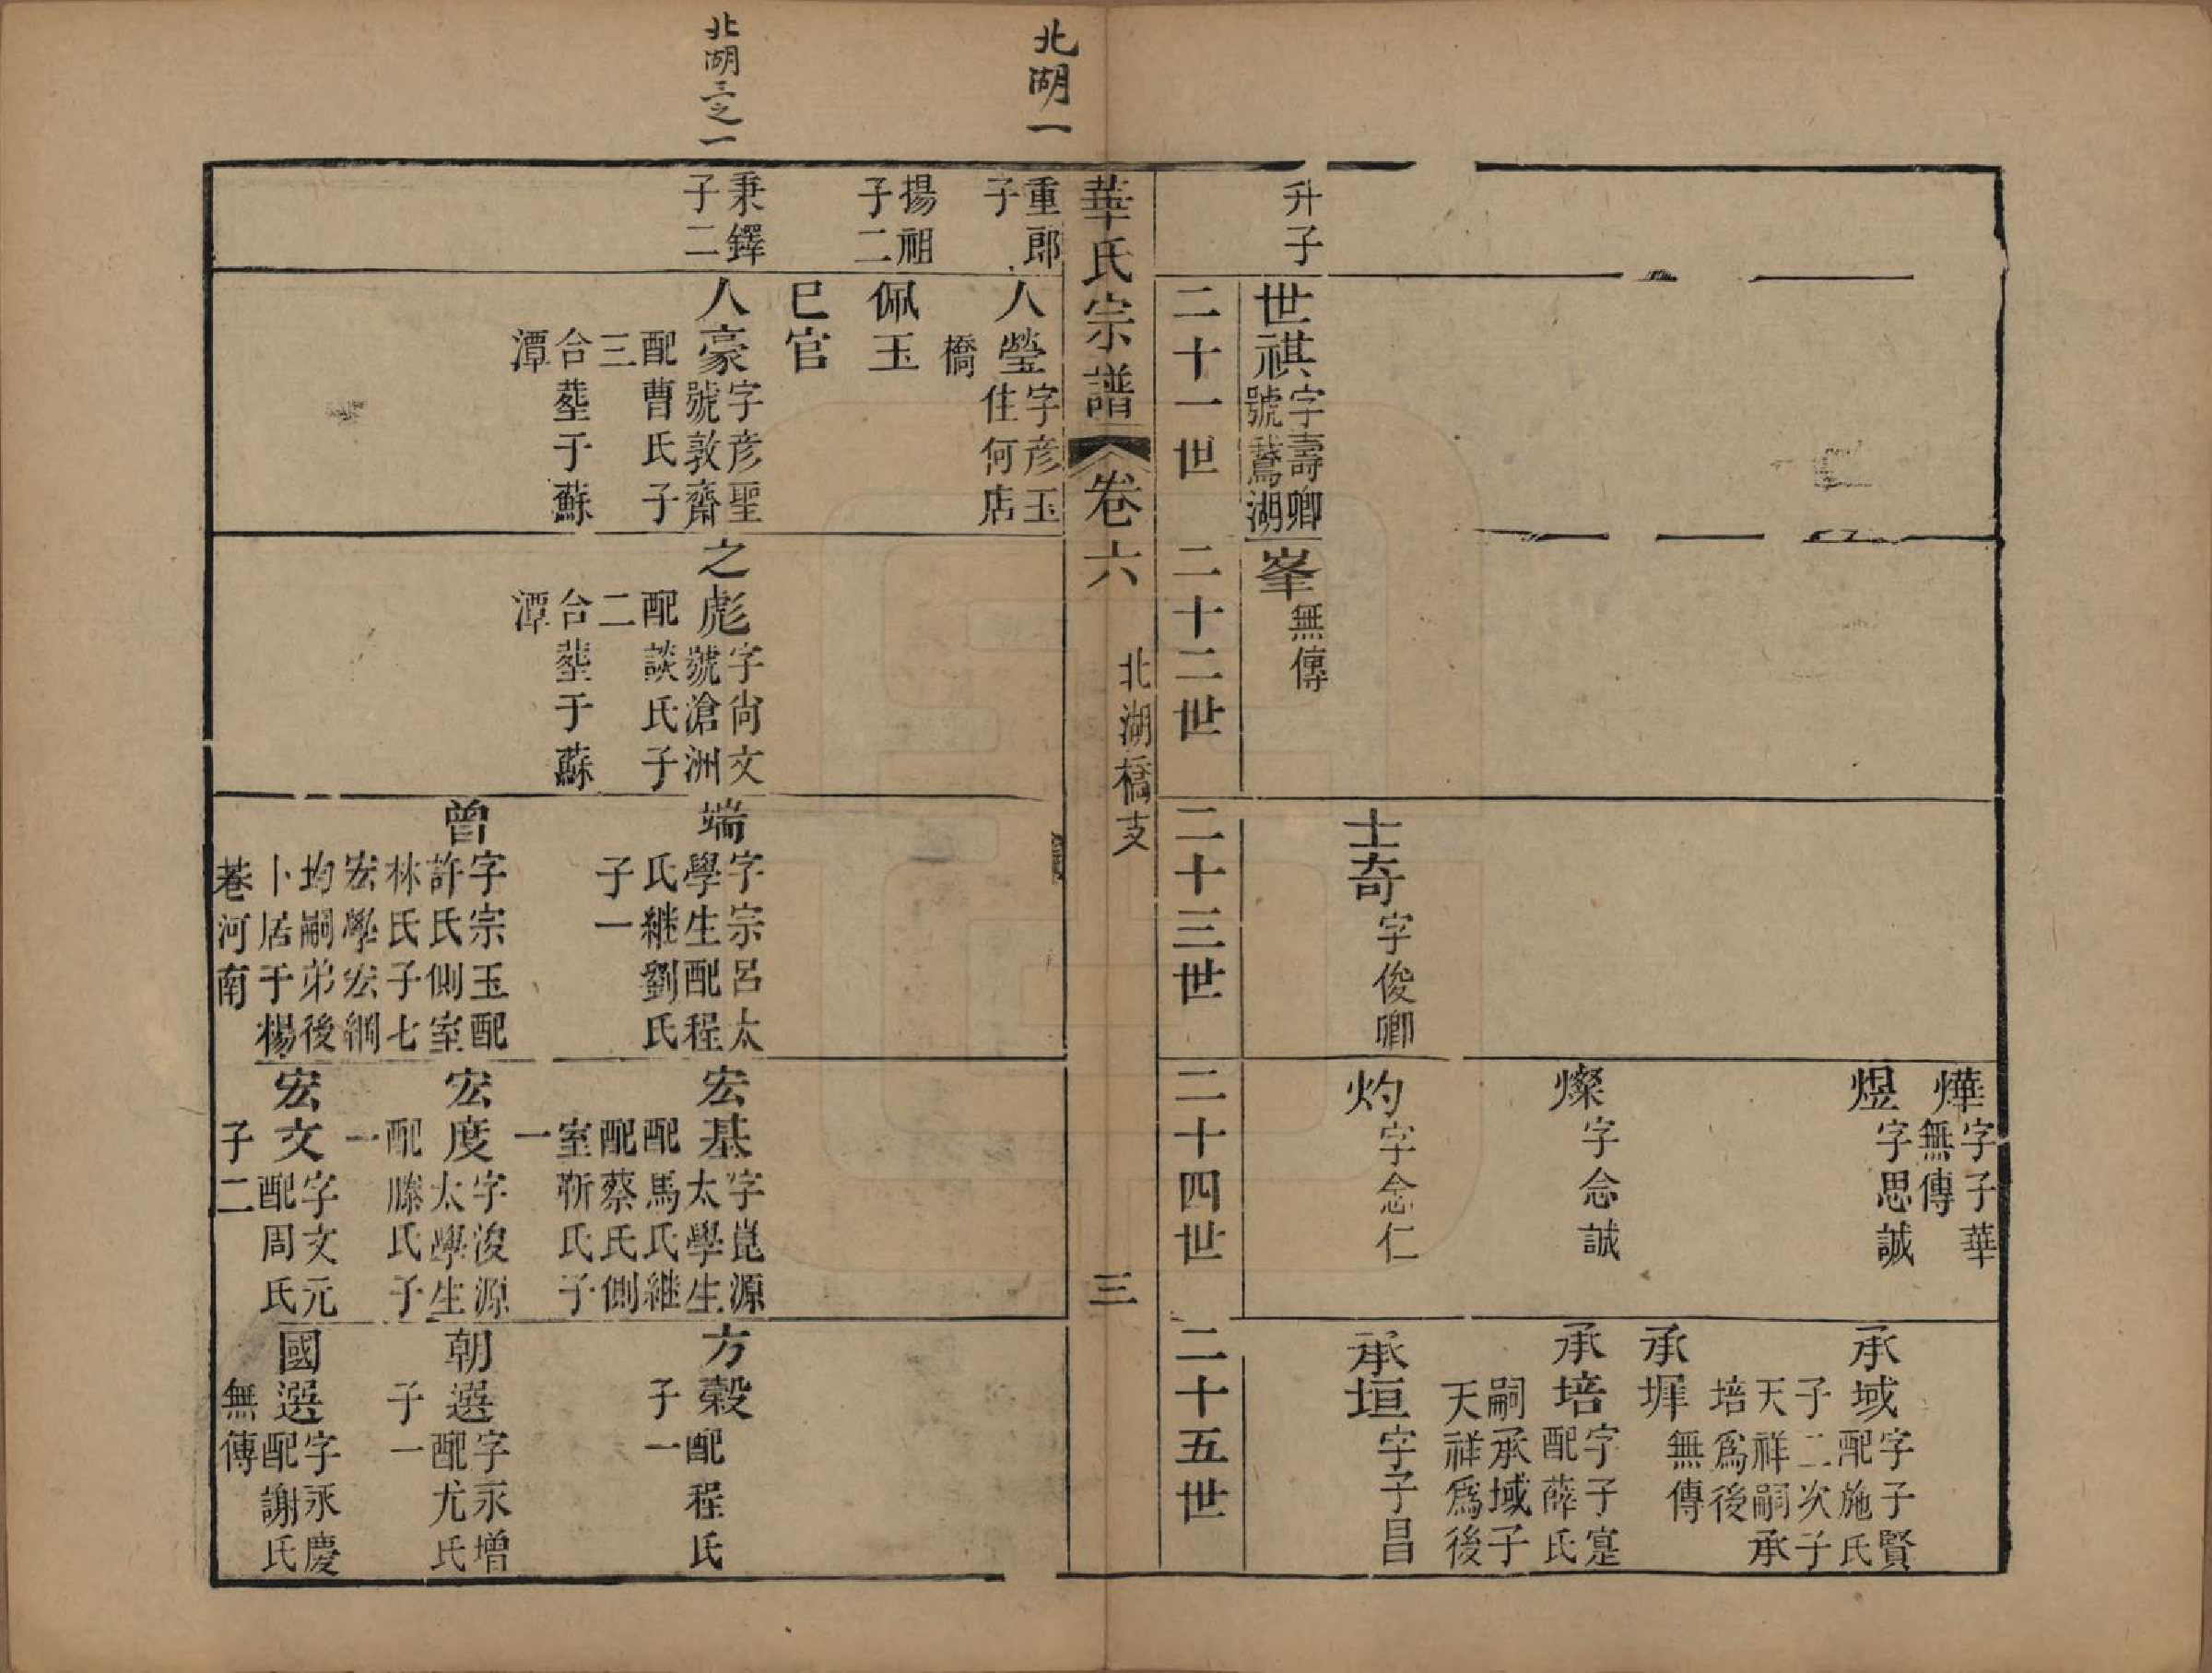 燁
字子華
無傳
煜
字思誠
承域
字子賢
配施氏
子二次子
天祥嗣承
培爲後
承墀
無傳
燦
字念誠
承培
字子寔
配薛氏
嗣承域子
天祥爲後
士奇
字俊卿
灼
字念仁
承垣
字子昌
升子
世祺
字壽卿
號鵞湖
峯
無傳
二十一世
二十二世
二十三世
二十四世
二十五世
華氏宗譜
卷六
北湖橋支
三
北湖一
重郎
子
人瑩
字彦玉
住何店
橋
揚祖
子二
佩玉
巳官
北湖三之一
秉鐸
子二
人豪
字彦聖
號敦齋
配曹氏子
三
合塟于蘇
潭
之彪
字尙文
號滄洲
配談氏子
二
合塟于蘇
潭
端
字宗呂太
學生配程
氏継劉氏
子一
宏基
字崑源
太學生
配馬氏継
配蔡氏側
室靳氏子
一
方榖
配程氏
子一
曾
字宗玉配
許氏側室
林氏子七
宏學宏綱
均嗣弟後
卜居于楊
巷河南
宏度
字浚源
太學生
配滕氏子
一
朝選
字永增
配尤氏
子一
宏文
字文元
配周氏
子二
國選
字永慶
配謝氏
無傳